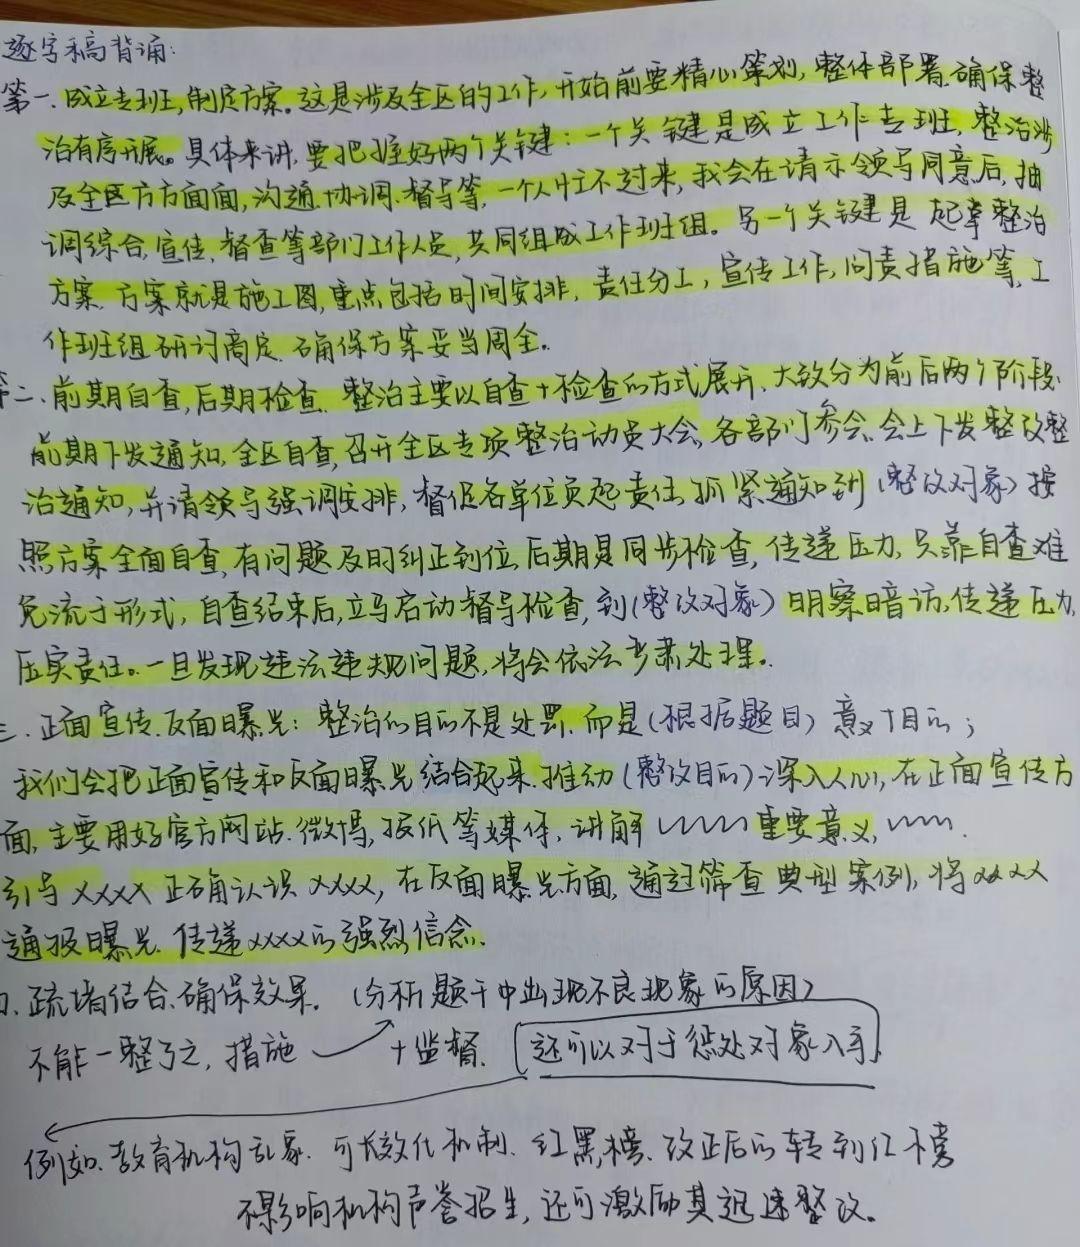 逐字稿背诵:
第一.成立专班,制定方案。这是涉及全区的工作,开始前要精心策划,整体部署.确保整
治有序开展。具体来讲,要把握好两个关键:一个关键是成立工作专班,整治涉
及全区方方面面,沟通.协调.督导等,一个人忙不过来,我会在请示领导同意后,抽
调综合,宣传,督查等部门工作人员,共同组成工作班组。另一个关键是 起草整治
方案.方案就是施工图,重点包括时间安排,责任分工,宣传工作,问责措施等,工
作班组研讨商定.确保方案妥当周全。
第二、前期自查,后期检查.整治主要以自查+检查的方式展开.大致分为前后两个阶段.
前期下发通知,全区自查,召开全区专项整治动员大会,各部门参会.会上下发整改整
治通知,并请领导强调安排,督促各单位负起责任,抓紧通知到(整改对象)按
照方案全面自查,有问题及时纠正到位,后期是同步检查,传递压力,只靠自查难
免流于形式,自查结束后,立马启动督导检查,到(整改对象)明察暗访,传递压力,
压实责任。一旦发现违法违规问题,将会依法严肃处理。
三.正面宣传.反面曝光:整治的目的不是处罚.而是(根据题目)意义+目的;
我们会把正面宣传和反面曝光结合起来.推动(整改目的)深入人心,在正面宣传方
面,主要用好官方网站.微博,报纸等媒体,讲解 重要意义,
引导xxxx正确认识xxxx,在反面曝光方面,通过筛查典型案例,将xxxx
通报曝光.传递xxxx的强烈信念.
四、疏堵结合.确保效果.(分析题干中出现不良现象的原因)
不能一整了之,措施 +监督.[还可以对于惩处对象入手]
例如.教育机构乱象.可长效化机制.红黑榜.改正后的转到红榜
不影响机构声誉招生,还可激励其迅速整改。